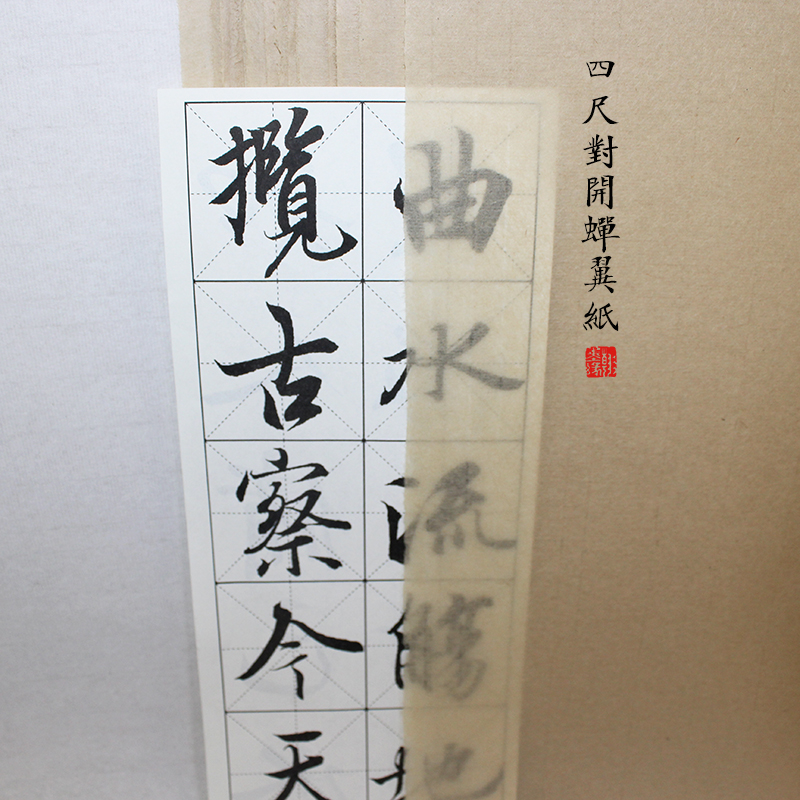 四尺對開蟬翼紙
曲水流觴地
攬古察今天